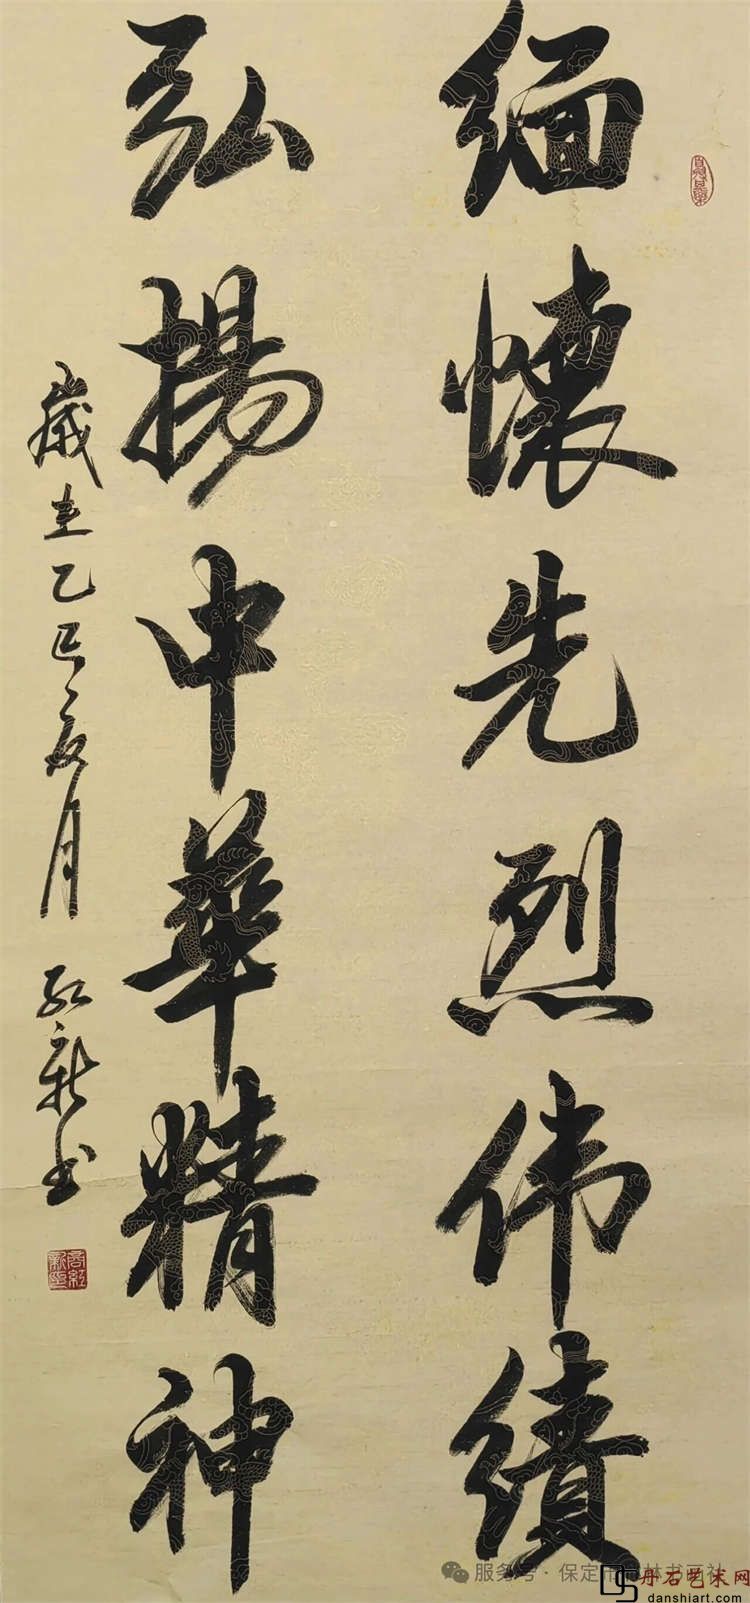 缅懷先烈伟績
弘揚中華精神
歲在乙巳夏月 红新书
服务号·保定市
林书画社
丹石艺术网
danshiart.com